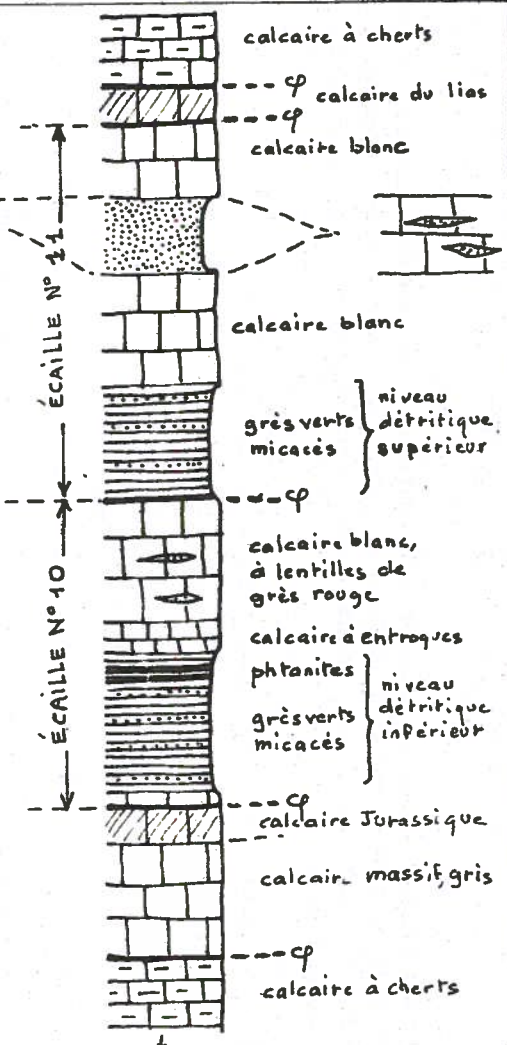 calcaire à cherts
φ
calcaire du lias
φ
calcaire blanc
ÉCAILLE N° 11
calcaire blanc
grès verts
micacés
niveau
détritique
supérieur
φ
ÉCAILLE N° 10
calcaire blanc,
à lentilles de
grès rouge
calcaire à entroques
phtanites
grès verts
micacés
niveau
détritique
inférieur
φ
calcaire Jurassique
calcair massif, gris
φ
calcaire à cherts